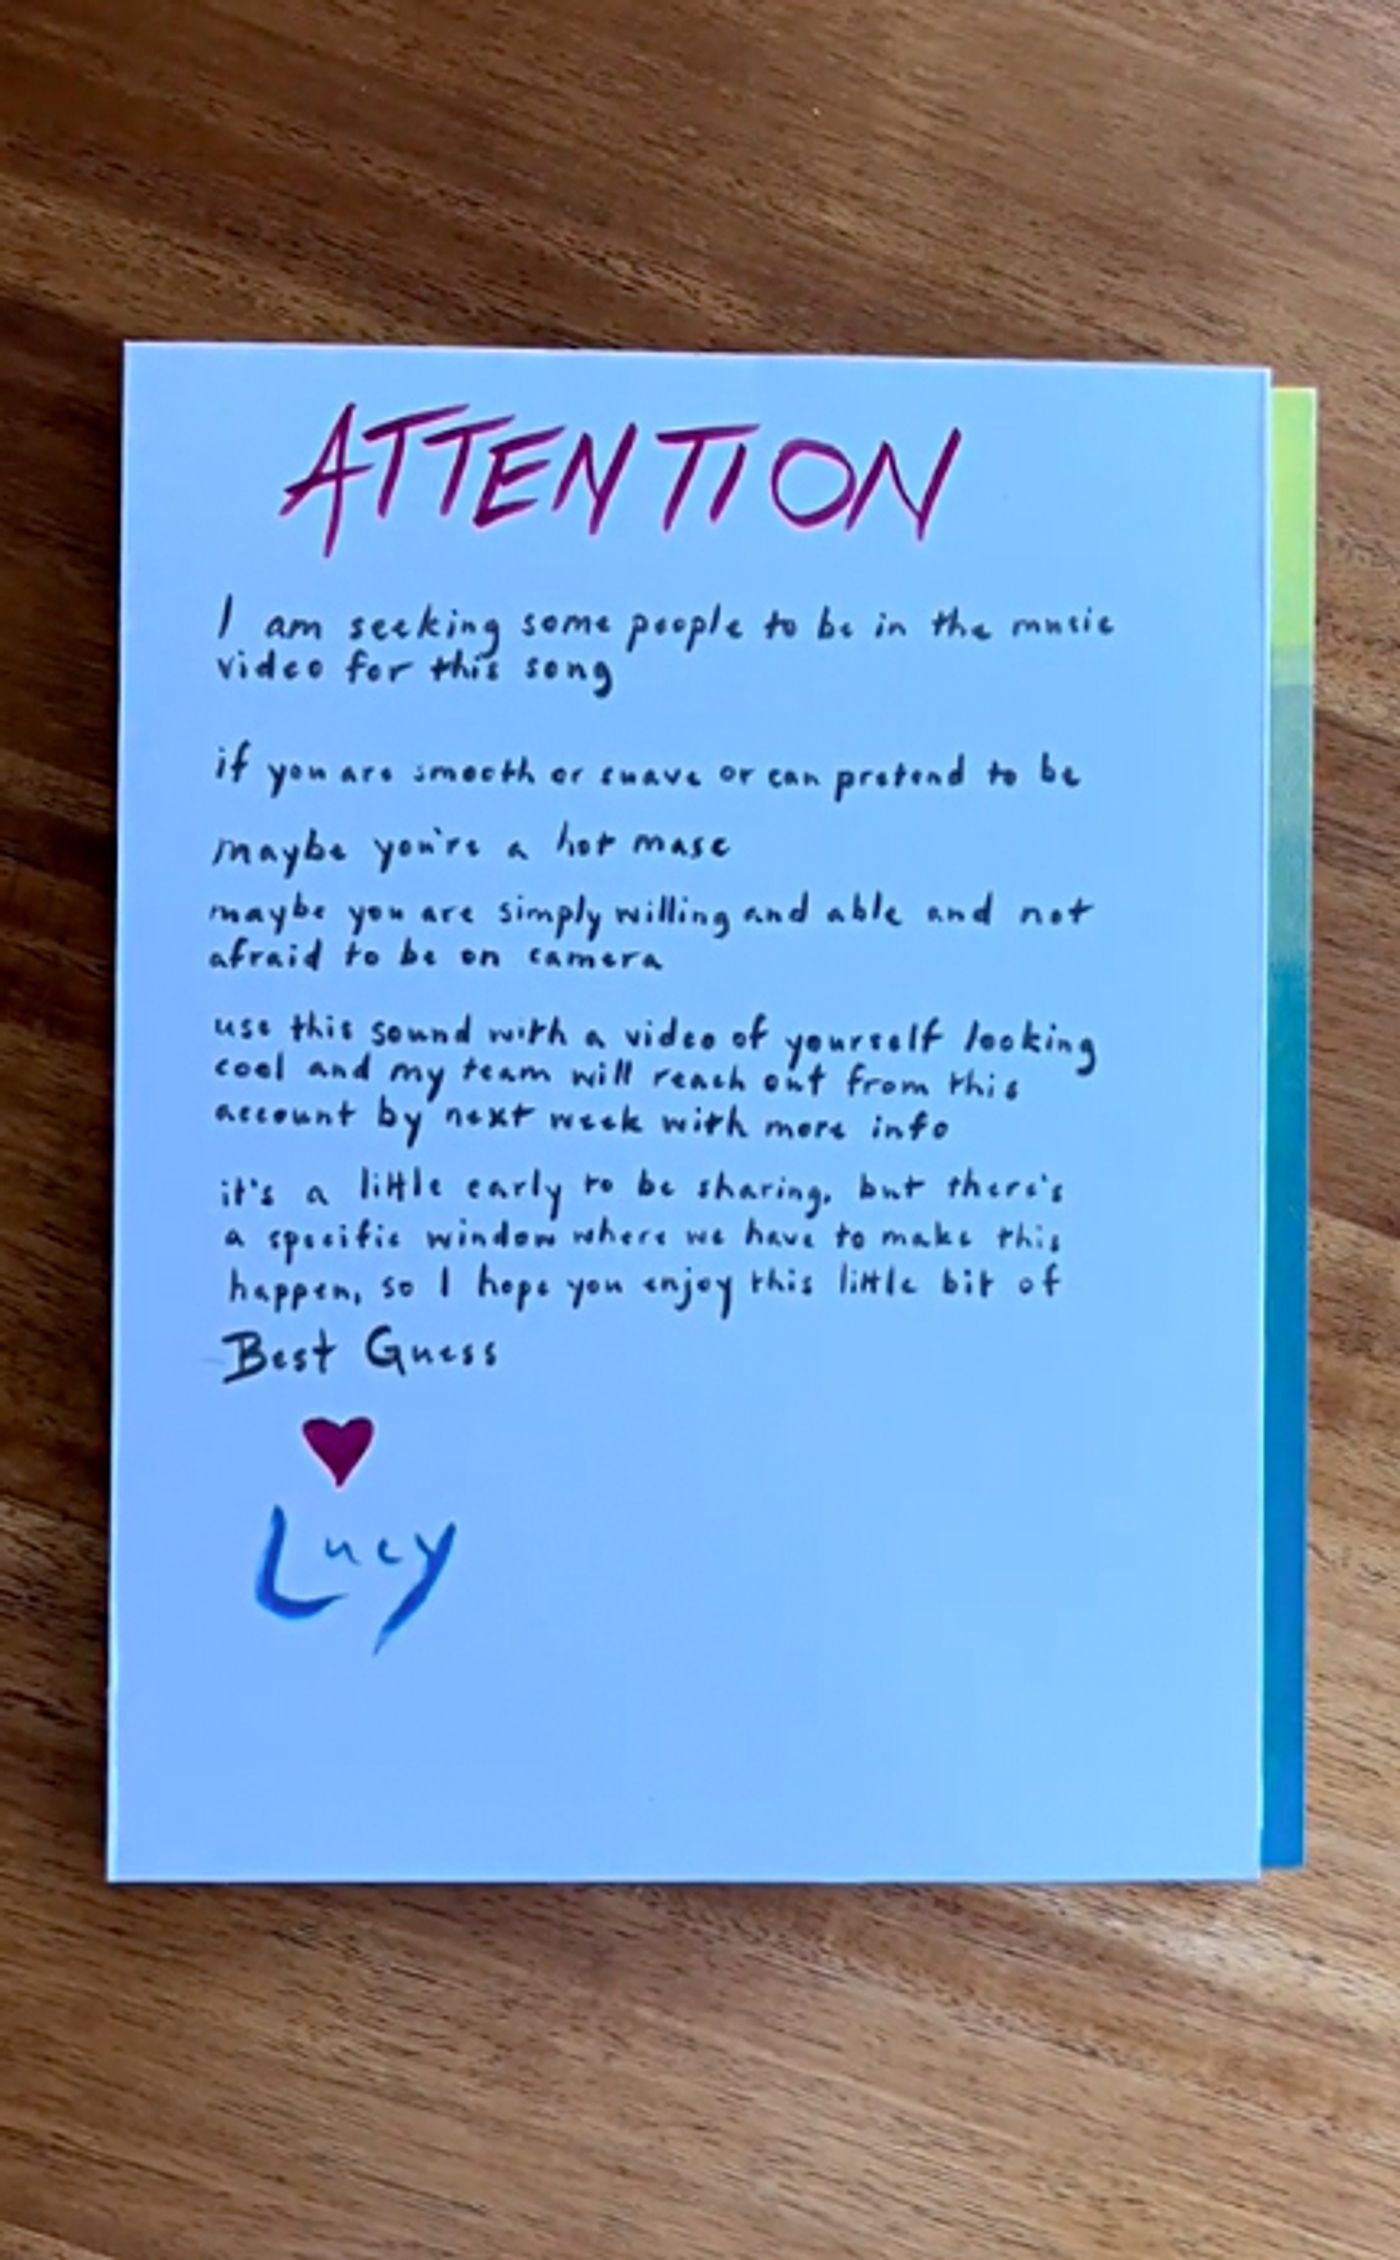 ATTENTION
I am seeking some people to be in the music
video for this song
if you are smooth or suave or can pretend to be
maybe you're a hot masc
maybe you are simply willing and able and not
afraid to be on camera
use this sound with a video of yourself looking
cool and my team will reach out from this
account by next week with more info
it's a little early to be sharing, but there's
a specific window where we have to make this
happen, so I hope you enjoy this little bit of
Best Guess
Lucy